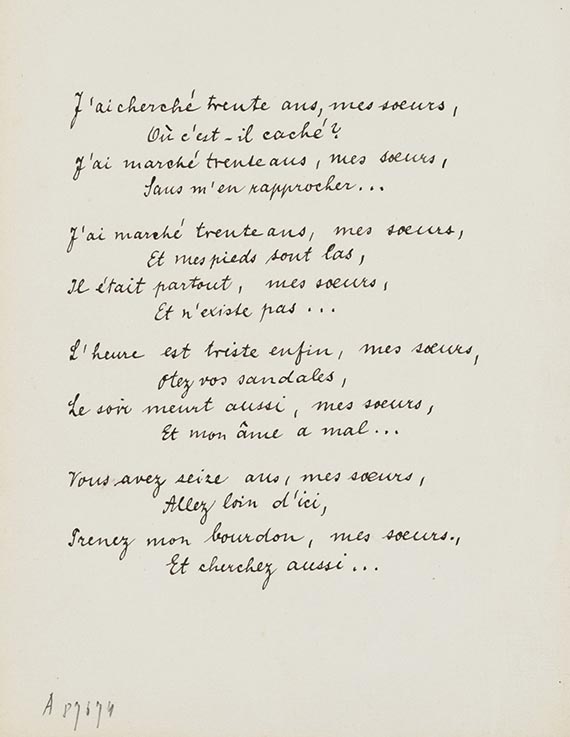 J'ai cherché trente ans, mes sœurs,
Où c'est-il caché?
J'ai marché trente ans, mes sœurs,
Sans m'en rapprocher...
J'ai marché trente ans, mes sœurs,
Et mes pieds sont las,
Il était partout, mes sœurs,
Et n'existe pas...
L'heure est triste enfin, mes sœurs,
Otez vos sandales,
Le soir meurt aussi, mes sœurs,
Et mon âme a mal...
Vous avez seize ans, mes sœurs,
Allez loin d'ici,
Prenez mon bourdon, mes sœurs.,
Et cherchez aussi...
A